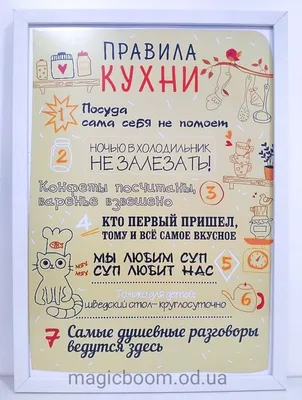 ПРАВИЛА
КУХНИ
1 Посуда
сама себя не помоет
2 НОЧЬЮ В ХОЛОДИЛЬНИК
НЕ ЗАЛЕЗАТЬ!
Конфеты посчитаны,
варенье взвешено 3
4 КТО ПЕРВЫЙ ПРИШЕЛ,
ТОМУ И ВСЁ САМОЕ ВКУСНОЕ
МЫ ЛЮБИМ СУП
СУП ЛЮБИТ НАС 5
Только для детей:
шведский стол - круглосуточно 6
7 Самые душевные разговоры
ведутся здесь
magicboom.od.ua